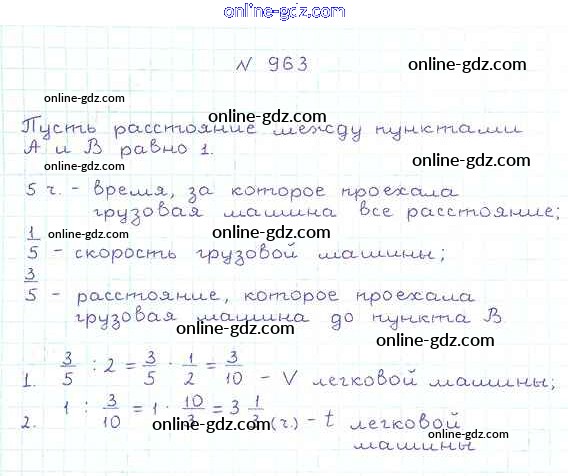 online-gdz.com
N 963
online-gdz.com
online-gdz.com
online-gdz.com
Пусть расстояние между пунктами
А и В равно 1.
online-gdz.com
online-gdz.com
5 ч. - время, за которое проехала
грузовая машина все расстояние;
online-gdz.com
online-gdz.com
1/5 - скорость грузовой машины;
3/5 - расстояние, которое проехала
грузовая машина до пункта В
online-gdz.com
online-gdz.com
1. 3/5 : 2 = 3/5 · 1/2 = 3/10 - V легковой машины;
2. 1 : 3/10 = 1 · 10/3 = 3 1/3 (ч.) - t легковой
машины
online-gdz.com
online-gdz.com